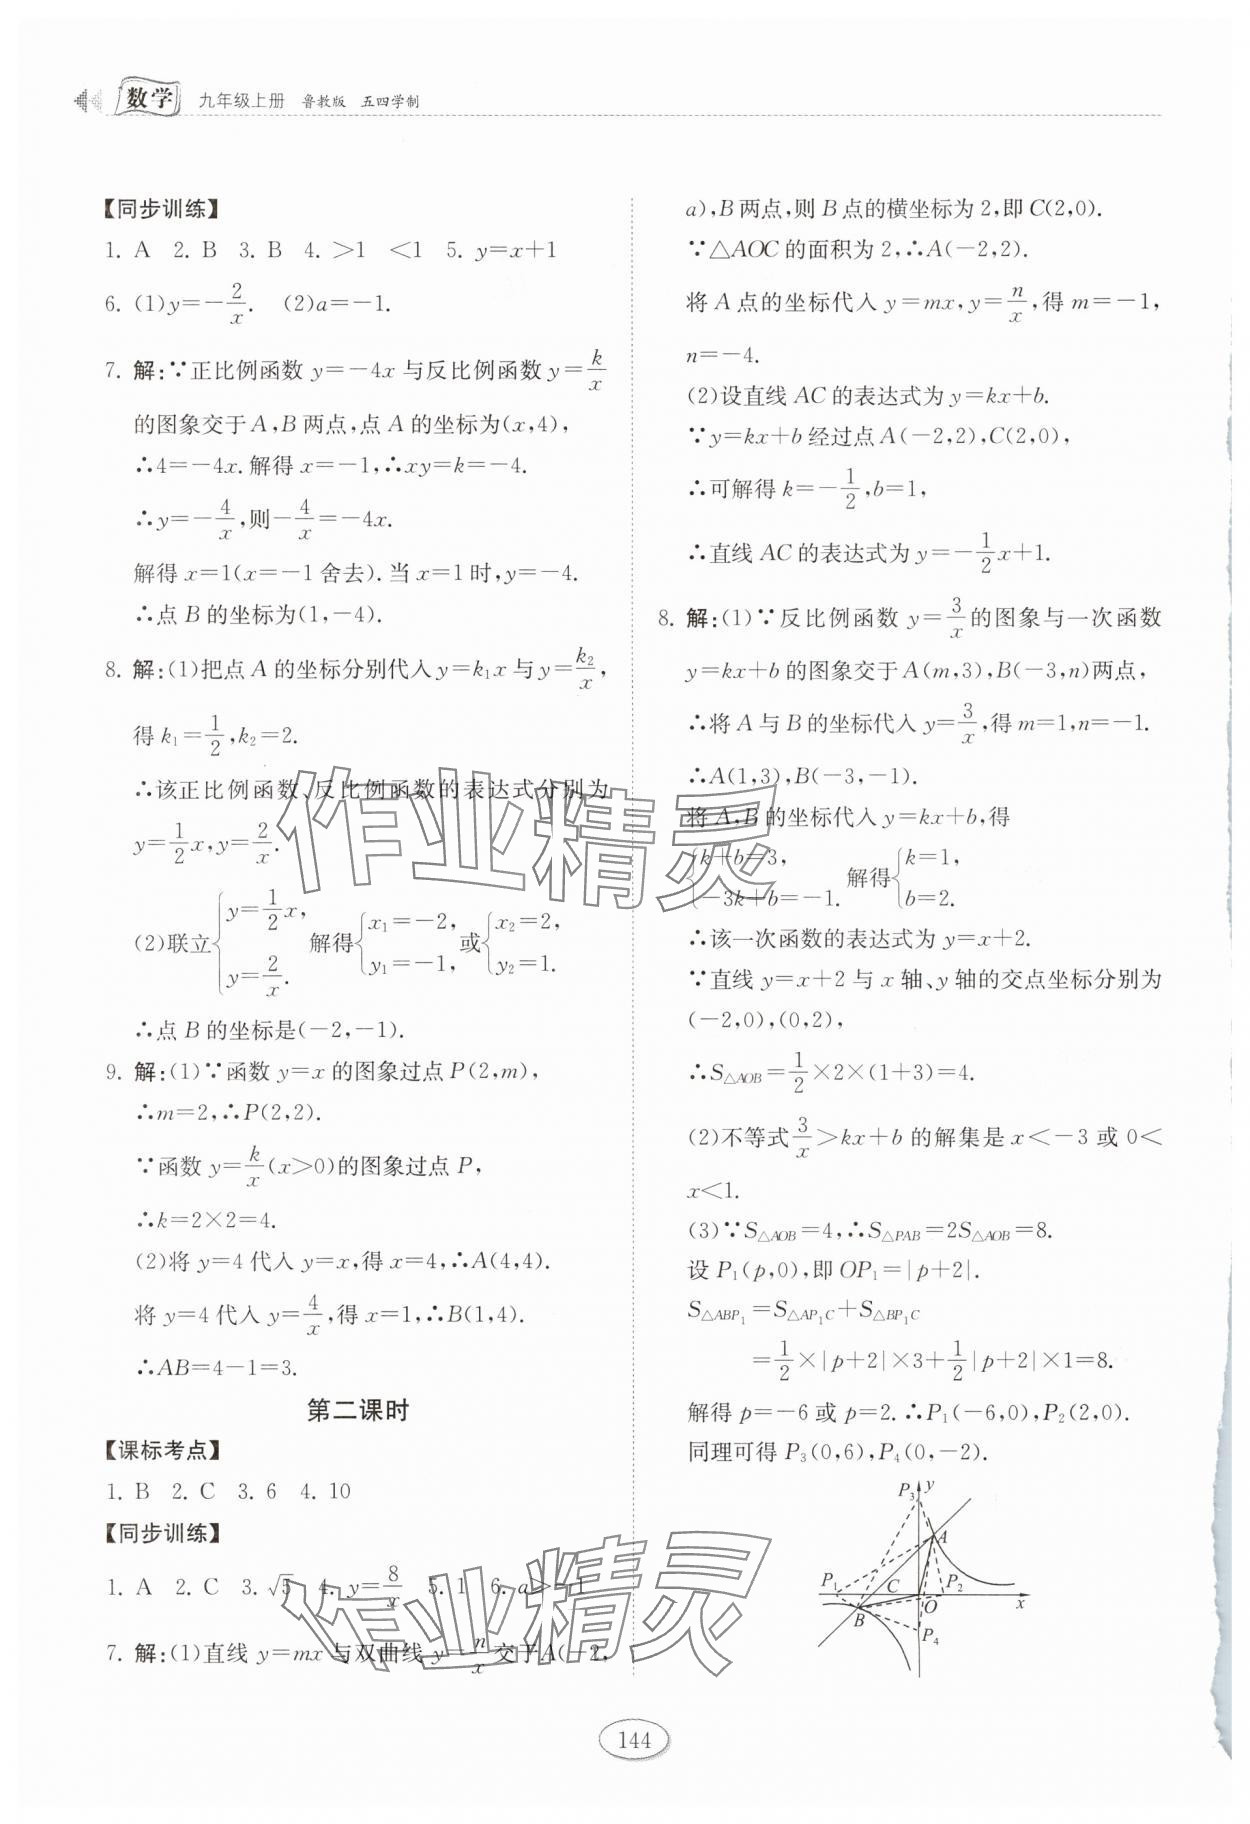 数学 九年级上册 鲁教版 五四学制
【同步训练】
1. A 2. B 3. B 4. >1 <1 5. y=x+1
6. (1)y=-2/x. (2)a=-1.
7. 解:∵正比例函数 y=-4x 与反比例函数 y=k/x
的图象交于 A,B 两点,点 A 的坐标为(x,4),
∴4=-4x.解得 x=-1,∴xy=k=-4.
∴y=-4/x,则-4/x=-4x.
解得 x=1(x=-1 舍去).当 x=1 时,y=-4.
∴点 B 的坐标为(1,-4).
8. 解:(1)把点 A 的坐标分别代入 y=k₁x 与 y=k₂/x,
得 k₁=1/2,k₂=2.
∴该正比例函数、反比例函数的表达式分别为
y=1/2x,y=2/x.
(2)联立{y=1/2x, y=2/x. 解得{x₁=-2, y₁=-1, 或{x₂=2, y₂=1.
∴点 B 的坐标是(-2,-1).
9. 解:(1)∵函数 y=x 的图象过点 P(2,m),
∴m=2,∴P(2,2).
∵函数 y=k/x(x>0)的图象过点 P,
∴k=2×2=4.
(2)将 y=4 代入 y=x,得 x=4,∴A(4,4).
将 y=4 代入 y=4/x,得 x=1,∴B(1,4).
∴AB=4-1=3.
第二课时
【课标考点】
1. B 2. C 3. 6 4. 10
【同步训练】
1. A 2. C 3. √5 4. y=8/x 5. 1 6. a>-1
7. 解:(1)直线 y=mx 与双曲线 y=n/x 交于 A(-2,
a),B 两点,则 B 点的横坐标为 2,即 C(2,0).
∵△AOC 的面积为 2,∴A(-2,2).
将 A 点的坐标代入 y=mx,y=n/x,得 m=-1,
n=-4.
(2)设直线 AC 的表达式为 y=kx+b.
∵y=kx+b 经过点 A(-2,2),C(2,0),
∴可解得 k=-1/2,b=1,
∴直线 AC 的表达式为 y=-1/2x+1.
8. 解:(1)∵反比例函数 y=3/x的图象与一次函数
y=kx+b 的图象交于 A(m,3),B(-3,n)两点,
∴将 A 与 B 的坐标代入 y=3/x,得 m=1,n=-1.
∴A(1,3),B(-3,-1).
将 A,B 的坐标代入 y=kx+b,得
{k+b=3, -3k+b=-1. 解得{k=1, b=2.
∴该一次函数的表达式为 y=x+2.
∵直线 y=x+2 与 x 轴、y 轴的交点坐标分别为
(-2,0),(0,2),
∴S△AOB=1/2×2×(1+3)=4.
(2)不等式3/x>kx+b 的解集是 x<-3 或 0<
x<1.
(3)∵S△AOB=4,∴S△PAB=2S△AOB=8.
设 P₁(p,0),即 OP₁=|p+2|.
S△ABP₁=S△AP₁C+S△BP₁C
=1/2×|p+2|×3+1/2|p+2|×1=8.
解得 p=-6 或 p=2.∴P₁(-6,0),P₂(2,0).
同理可得 P₃(0,6),P₄(0,-2).
P₃ y
A
P₁ C P₂
B O x
P₄
作业精灵
作业精灵
144